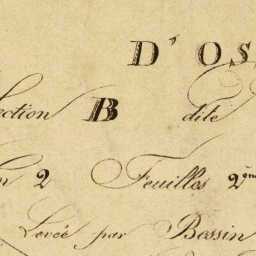 D' OS
ection B dite
n 2 Feuilles 2ème
Levée par Bessin